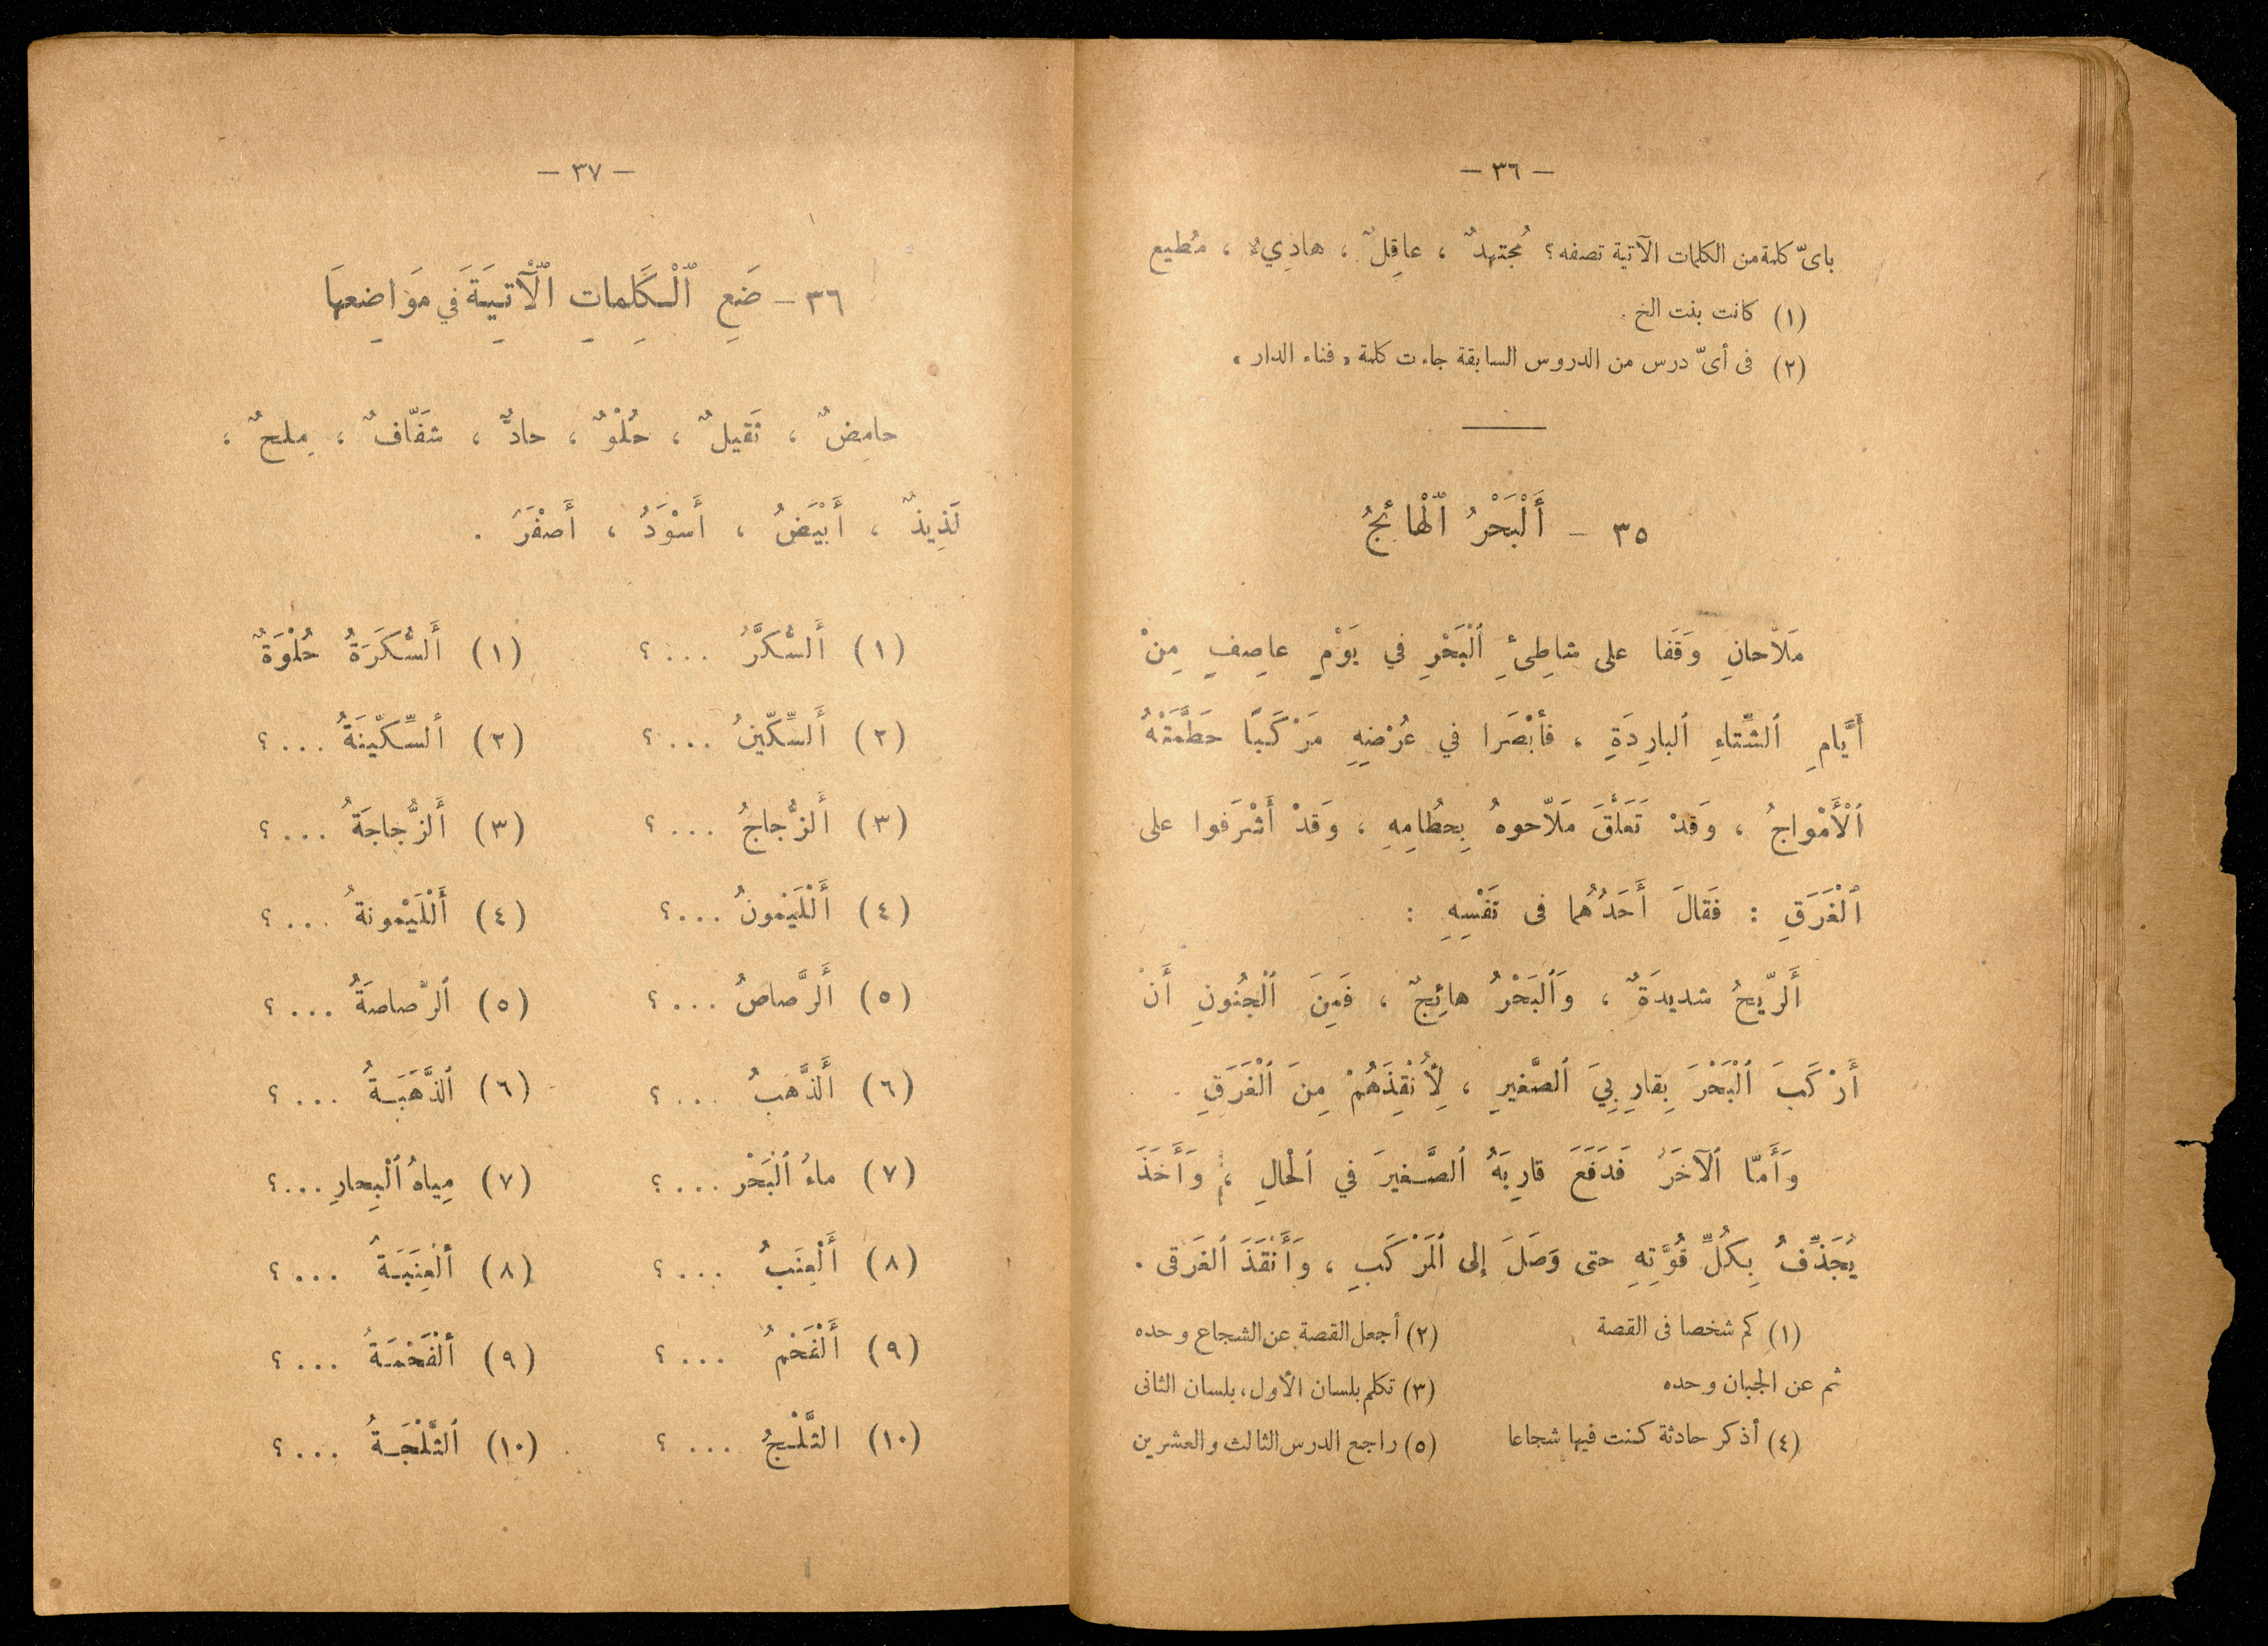 — ٣٦ —
بأىّ كلمة من الكلمات الآتية تصفه؟ مُجتهِدٌ ، عاقِلٌ ، هادِيءٌ ، مُطيع
(١) كانت بنت الخ .
(٢) فى أىّ درس من الدروس السابقة جاءت كلمة « فناء الدار »
٣٥ — أَلْبَحْرُ ٱلْهائِجُ
مَلاّحانِ وَقَفا على شاطِئِ ٱلْبَحْرِ في يَوْمٍ عاصِفٍ مِنْ
أَيَّامِ ٱلشِّتاءِ ٱلبارِدَةِ ، فأبْصَرا في عُرْضِهِ مَرْكَبًا حَطَّمَتْهُ
ٱلْأَمْواجُ ، وَقَدْ تَعَلَّقَ مَلاّحوهُ بِحُطامِهِ ، وَقَدْ أَشْرَفوا على
ٱلْغَرَقِ : فَقالَ أَحَدُهُما فى نَفْسِهِ :
أَلرّيحُ شديدَةٌ ، وَٱلبَحْرُ هائِجٌ ، فَمِنَ ٱلْجُنُونِ أَنْ
أَرْكَبَ ٱلْبَحْرَ بِقارِبِيَ ٱلصَّغيرِ ، لِأُنْقِذَهُمْ مِنَ ٱلْغَرَقِ .
وَأَمّا ٱلآخَرُ فَدَفَعَ قارِبَهُ ٱلصَّغيرَ في ٱلْحالِ ، وَأَخَذَ
يُجَذِّفُ بِكُلِّ قُوَّتِهِ حتى وَصَلَ إلى ٱلمَرْكَبِ ، وَأَنْقَذَ ٱلغَرَقى .
(١) كم شخصا فى القصة (٢) أجعل القصة عن الشجاع وحده
ثم عن الجبان وحده (٣) تكلم بلسان الأول ، بلسان الثانى
(٤) أذكر حادثة كنت فيها شجاعا (٥) راجع الدرس الثالث والعشرين
— ٣٧ —
٣٦ — ضَعِ ٱلْكَلِماتِ ٱلْآتِيَةَ في مَوَاضِعِهَا
حامِضٌ ، ثَقيلٌ ، حُلْوٌ ، حادٌّ ، شَفّافٌ ، مِلحٌ ،
لَذِيذٌ ، أَبْيَضُ ، أَسْوَدُ ، أَصْفَرُ .
(١) أَلسُّكَّرُ ... ؟ (١) أَلسُّكَرَةُ حُلْوَةٌ
(٢) أَلسِّكّينُ ... ؟ (٢) ألسِّكّينَةُ ... ؟
(٣) أَلزُّجاجُ ... ؟ (٣) أَلزُّجاجَةُ ... ؟
(٤) أَللَّيْمونُ ... ؟ (٤) أَللَّيْمونةُ ... ؟
(٥) أَلرَّصاصُ ... ؟ (٥) ٱلرَّصاصَةُ ... ؟
(٦) أَلذَّهَبُ ... ؟ (٦) ٱلذَّهَبَةُ ... ؟
(٧) ماءُ ٱلْبَحْر ... ؟ (٧) مِياهُ ٱلْبِحارِ ... ؟
(٨) أَلْعِنَبُ ... ؟ (٨) ألعِنَبَةُ ... ؟
(٩) أَلْفَحْمُ ... ؟ (٩) ألْفَحْمَةُ ... ؟
(١٠) الثَّلْجُ ... ؟ (١٠) ٱلثَّلْجَةُ ... ؟